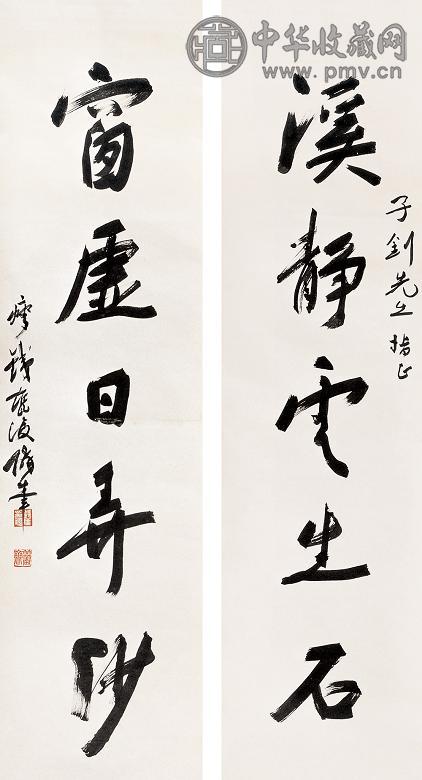 中华收藏网
www.pmv.cn
溪靜雲生石
子釗先生指正
窗虛日弄紗
瘦鐵